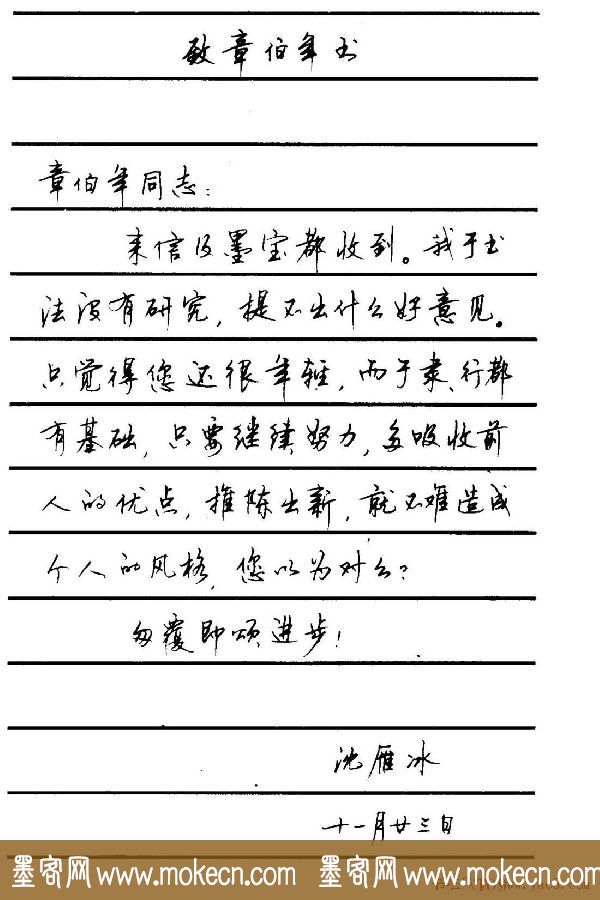 致章伯年书
章伯年同志：
来信及墨宝都收到。我于书
法没有研究，提不出什么好意见。
只觉得您还很年轻，而于隶、行都
有基础，只要继续努力，多吸收前
人的优点，推陈出新，就不难造成
个人的风格，您以为对么？
匆覆即颂进步！
沈雁冰
十一月廿三日
墨客网 www.mokecn.com 墨客网 www.mokecn.com